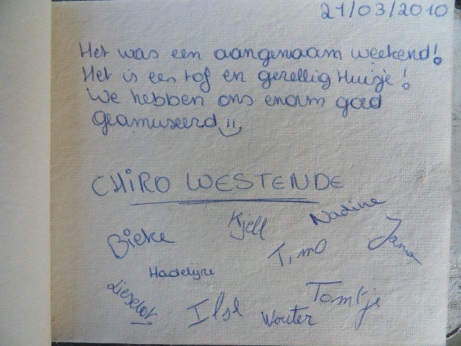 21/03/2010
Het was een aangenaam weekend!
Het is een tof en gezellig Huisje!
We hebben ons enorm goed
geamuseerd
CHIRO WESTENDE
Kjell Nadine
Bieke Timo Jana
Liselot Ilse Wouter Tomtje